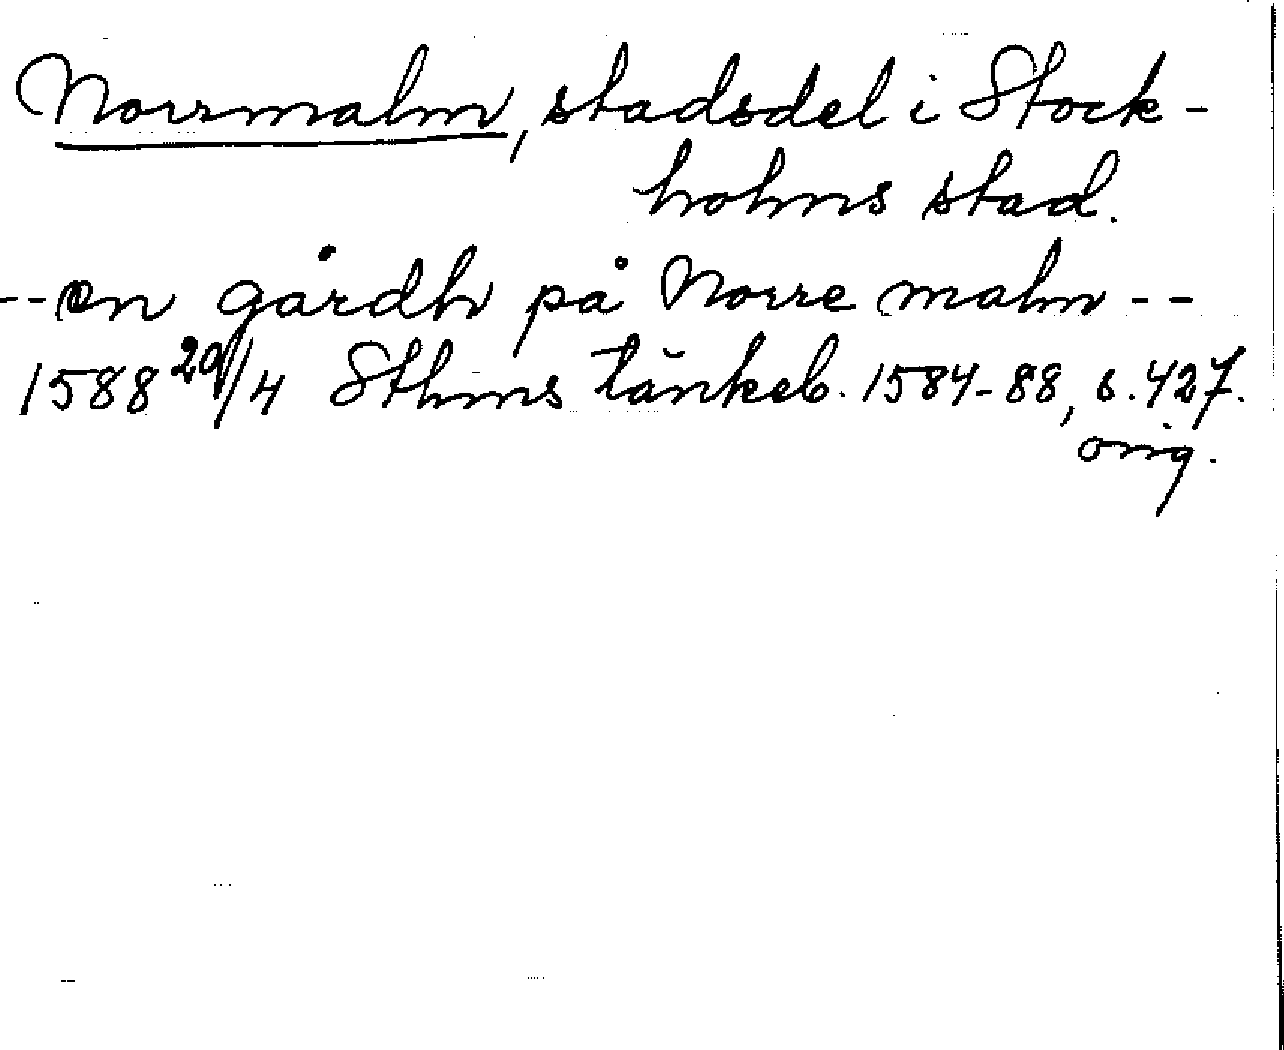 Norrmalm, stadsdel i Stock-
holms stad.
--en gårdh på Norre malm--
1588 29/4 Sthms tänkeb. 1584-88, s. 427.
orig.